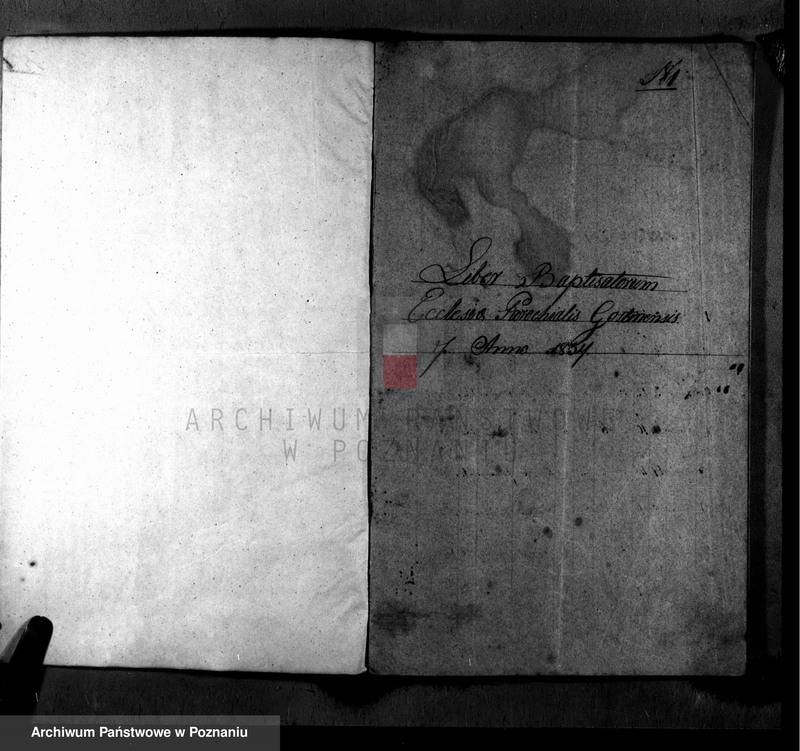 Liber Baptisatorum
Ecclesiæ Parochialis
Anno 1834
ARCHIWUM PAŃSTWOWE
W POZNANIU
Archiwum Państwowe w Poznaniu